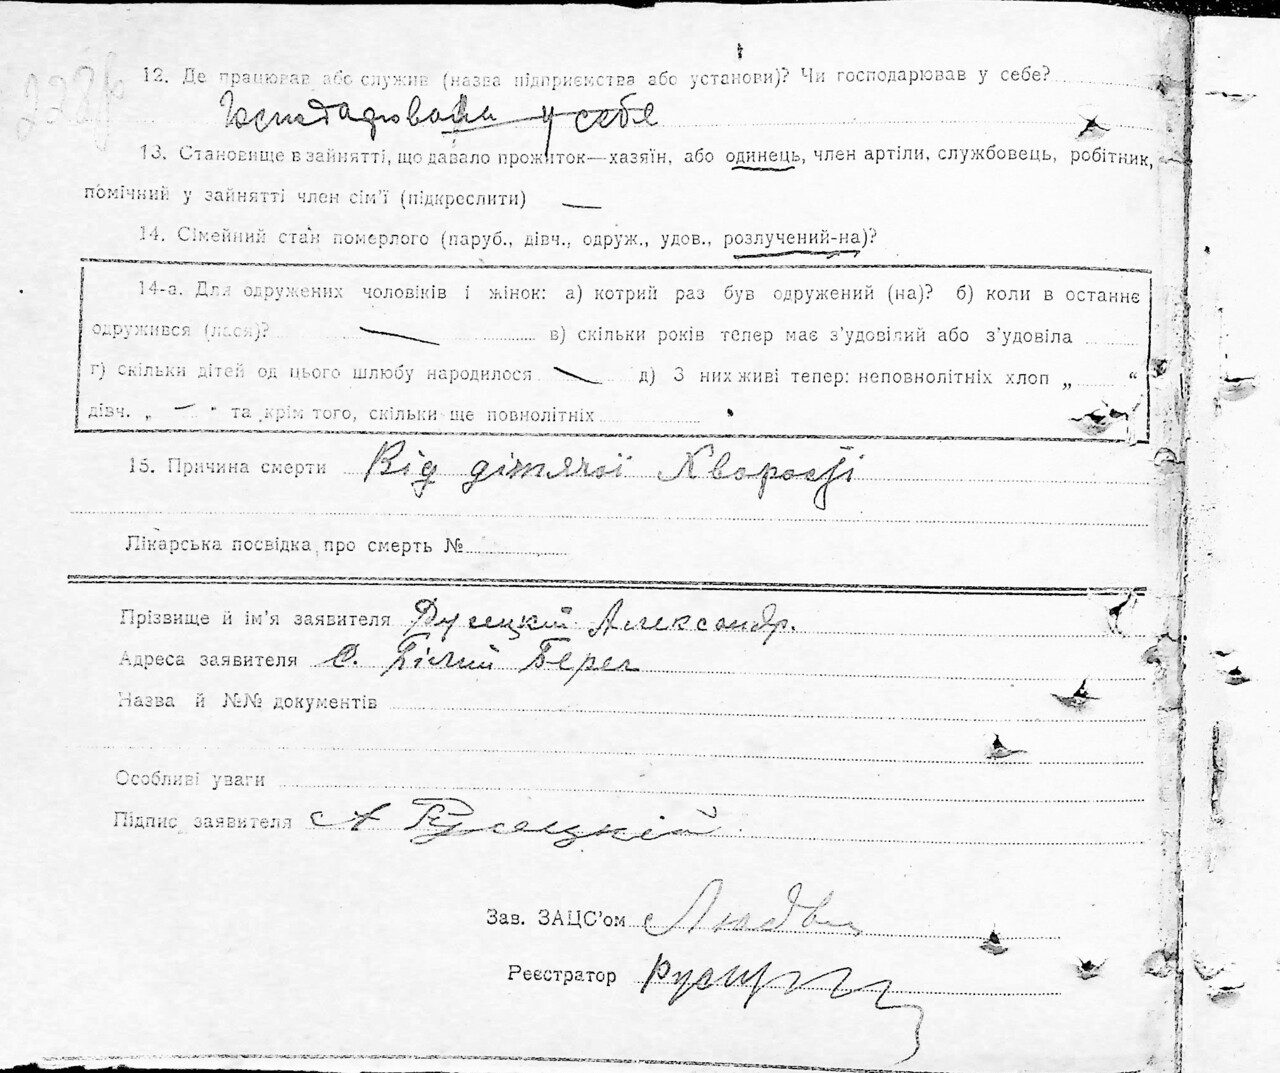 12. Де працював або служив (назва підприємства або установи)? Чи господарював у себе?
Господарювала у себе
13. Становище в зайнятті, що давало прожиток—хазяїн, або одинець, член артіли, службовець, робітник,
помічний у зайнятті член сім'ї (підкреслити) —
14. Сімейний стан померлого (паруб., дівч., одруж., удов., розлучений-на)?
14-а. Для одружених чоловіків і жінок: а) котрий раз був одружений (на)? б) коли в останнє
одружився (лася)? — в) скільки років тепер має з'удовілий або з'удовіла
г) скільки дітей од цього шлюбу народилося — д) З них живі тепер: неповнолітніх хлоп „ “
дівч. „ — " та крім того, скільки ще повнолітніх
15. Причина смерти Від дітячої Хворости
Лікарська посвідка про смерть №
Прізвище й ім'я заявителя Александр.
Адреса заявителя С. Білий Берег
Назва й №№ документів
Особливі уваги
Підпис заявителя А Русецкій
Зав. ЗАЦС'ом
Реєстратор